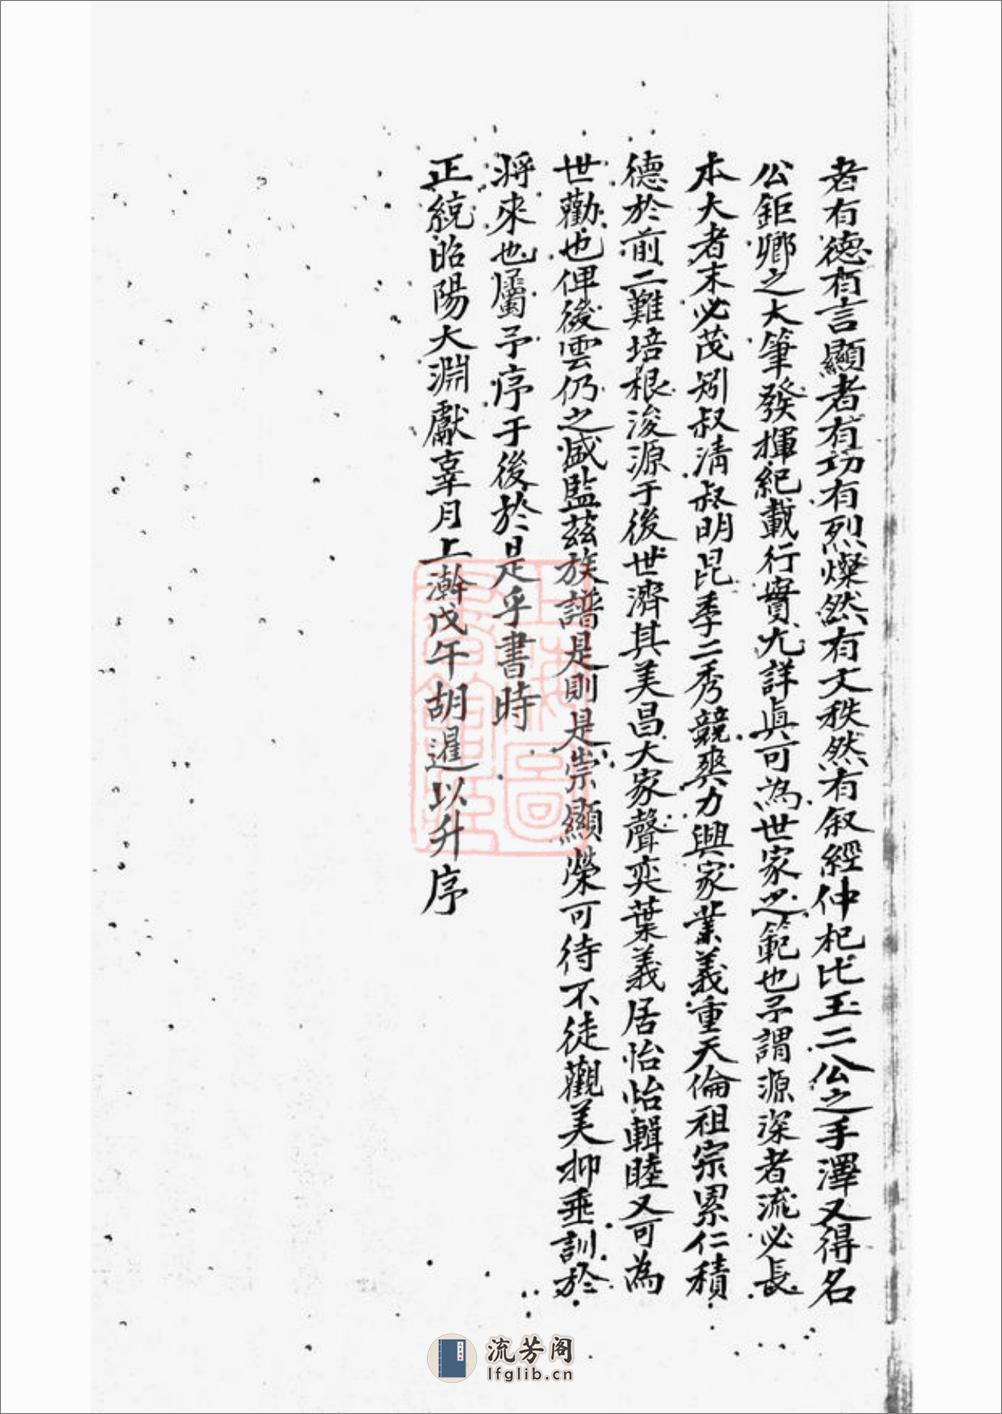 者有德有言顯者有功有烈燦然有文秩然有叙經仲杞比玉二公之手澤又得名
公鉅卿之大筆發揮紀載行實尤詳眞可為世家之範也予謂源深者流必長
本大者末必茂矧叔清叔明昆季二秀競爽力興家業義重天倫祖宗累仁積
德於前二難培根浚源于後世濟其美昌大家聲奕葉義居怡怡輯睦又可為
世勸也俾後雲仍之盛監茲族譜是則是崇顯榮可待不徒觀美抑垂訓於
將來也屬予序于後於是乎書時
正統昭陽大淵獻辜月上澣戊午胡暹以升序
上海圖書館藏
流芳阁
lfglib.cn